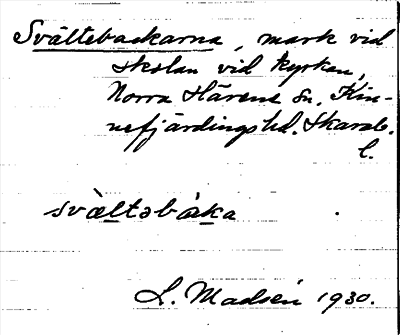 Svältebackarna, mark vid
skolan vid kyrkan,
Norra Härene sn. Kin-
nefjärdings hd. Skarab.
l.
svàltəbàka
L. Madsén 1930.